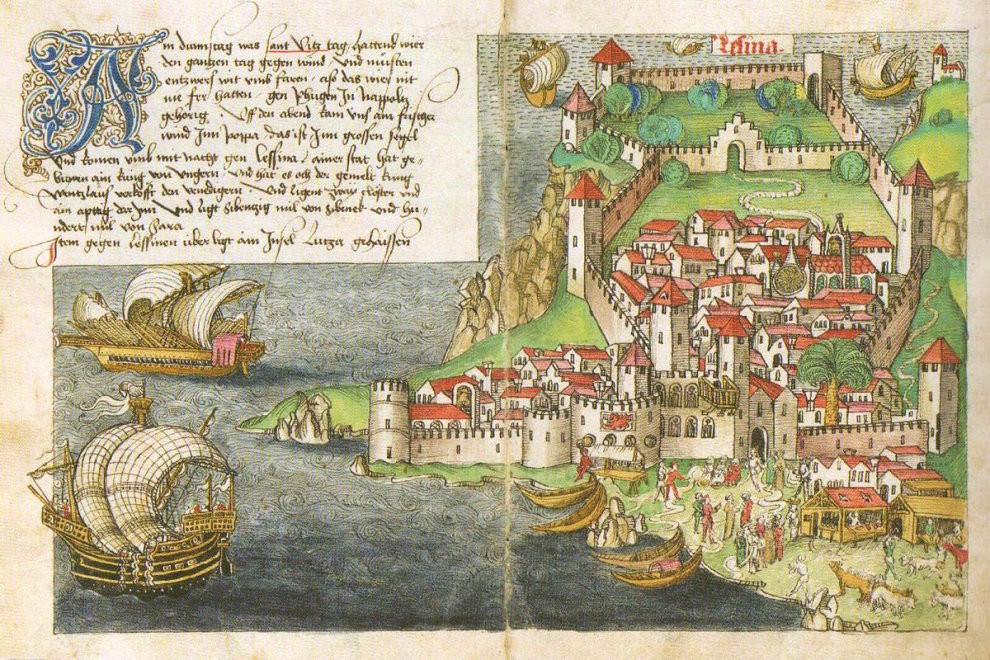 Ain dunstag was sant Vitz tag hattend wier
den gantzen tag gegen wind . Vnd müsten
entzwers wit vmb faren . also das wier nit
me fer hatten . gen Phugen In Nappolz
gehörig . Vff den abent kam vns ain frischer
wind Jnn poppa das ist Jnn grossen segel
Vnd komen vmb mit nacht gen Lessina / ainer stat hat ge-
buwen ain kung von vngern . vnd hat es och der gemelt kung
wentzlaus verkofft den venedigern . Vnd ligent zway clöster vnd
ain aptay dar Jnn . Vnd ligt sibenzig mil von sibinek . vnd hu-
ndert mil von Sara
Item gegen Lessinen uber ligt ain Jnsel Lutza gehaissen
Lesina.